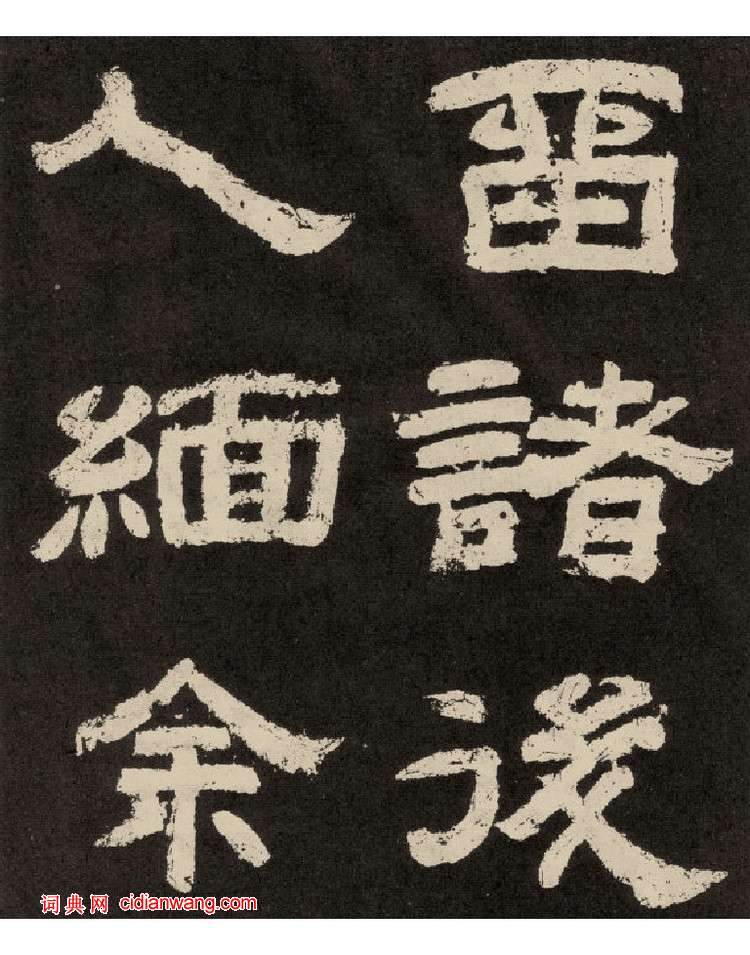 畱諸後
人緬余
词典网 cidianwang.com